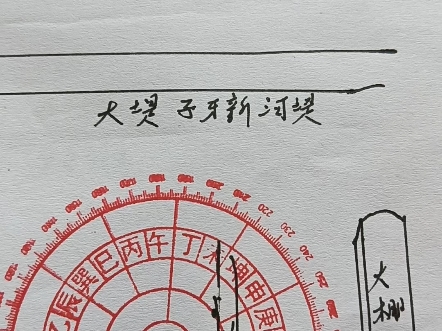 大堤 子牙新河堤
220
230
240
250
260
乙辰巽巳丙午丁未坤申庚
大棚